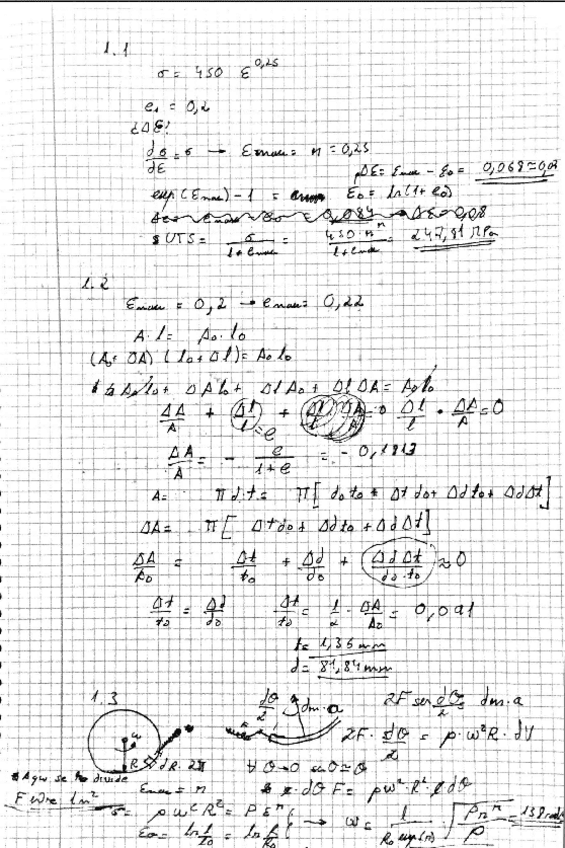 1.1
σ = 450 ε^0,25
e₁ = 0,2
¿Δε?
dσ/dε = σ → εmax = n = 0,25
Δε = εmax - ε₀ = 0,068 ≃ 0,0
exp(εmax) - 1 = ε₀ = ln(1+e₀)
0,084 Δε 0,08
UTS = σ/(1+emax) = 450·n^n/(1+emax) = 247,81 MPa
1.2
εmax = 0,2 → emax = 0,22
A·l = A₀·l₀
(A₀+ΔA)(l₀+Δl) = A₀l₀
A₀l₀ + ΔAl₀ + ΔlA₀ + ΔlΔA = A₀l₀
ΔA/A + Δl/l + Δl/l · ΔA/A = 0
= e
ΔA/A = - e/(1+e) = -0,1813
A = π d·t = π[d₀t₀ + Δtd₀ + Δdt₀ + ΔdΔt]
ΔA = π[Δtd₀ + Δdt₀ + ΔdΔt]
ΔA/A₀ = Δt/t₀ + Δd/d₀ + ΔdΔt/d₀·t₀ ≈ 0
Δt/t₀ = Δd/d₀ Δt/t₀ = 1/2 · ΔA/A₀ = 0,091
t = 1,36 mm
d = 81,84 mm
1.3
dθ/2 dm·a 2F sen dθ/2 = dm·a
ω
R dR
2F · dθ/2 = ρ·ω²R·dV
∀ θ→0 senθ≃θ
Aqui se divide
εmax = n dθ F = ρω²·R² dθ
F entre
σ = ρω²R² = P ε^n → ω = 1/(R₀ exp(n)) · √(P n^n/ρ) = 138 rad/s
ε₀ = ln l/l₀ = ln R/R₀